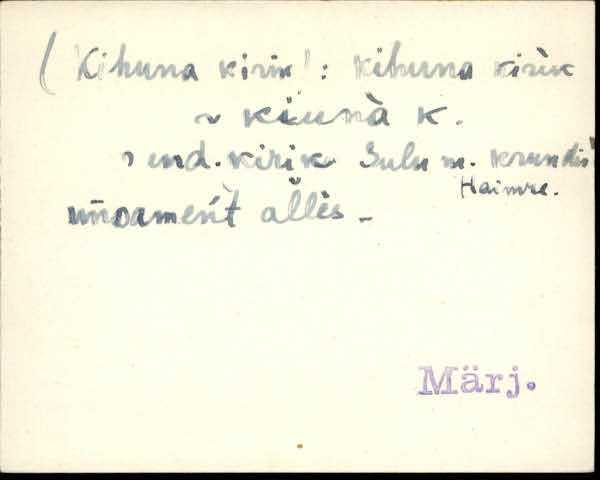 (Kihuna kirik): kihuna kirìk
~ kiunà k.
end. kirik Sulu m. krundis
Haimre.
alles -
Märj.